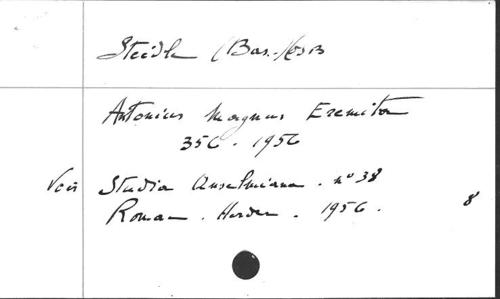 Steidle (Bas.) OSB
Antonius Magnus Eremita
356 - 1956
Voir Studia Anselmiana . n° 38
Romae . Herder . 1956 .
8